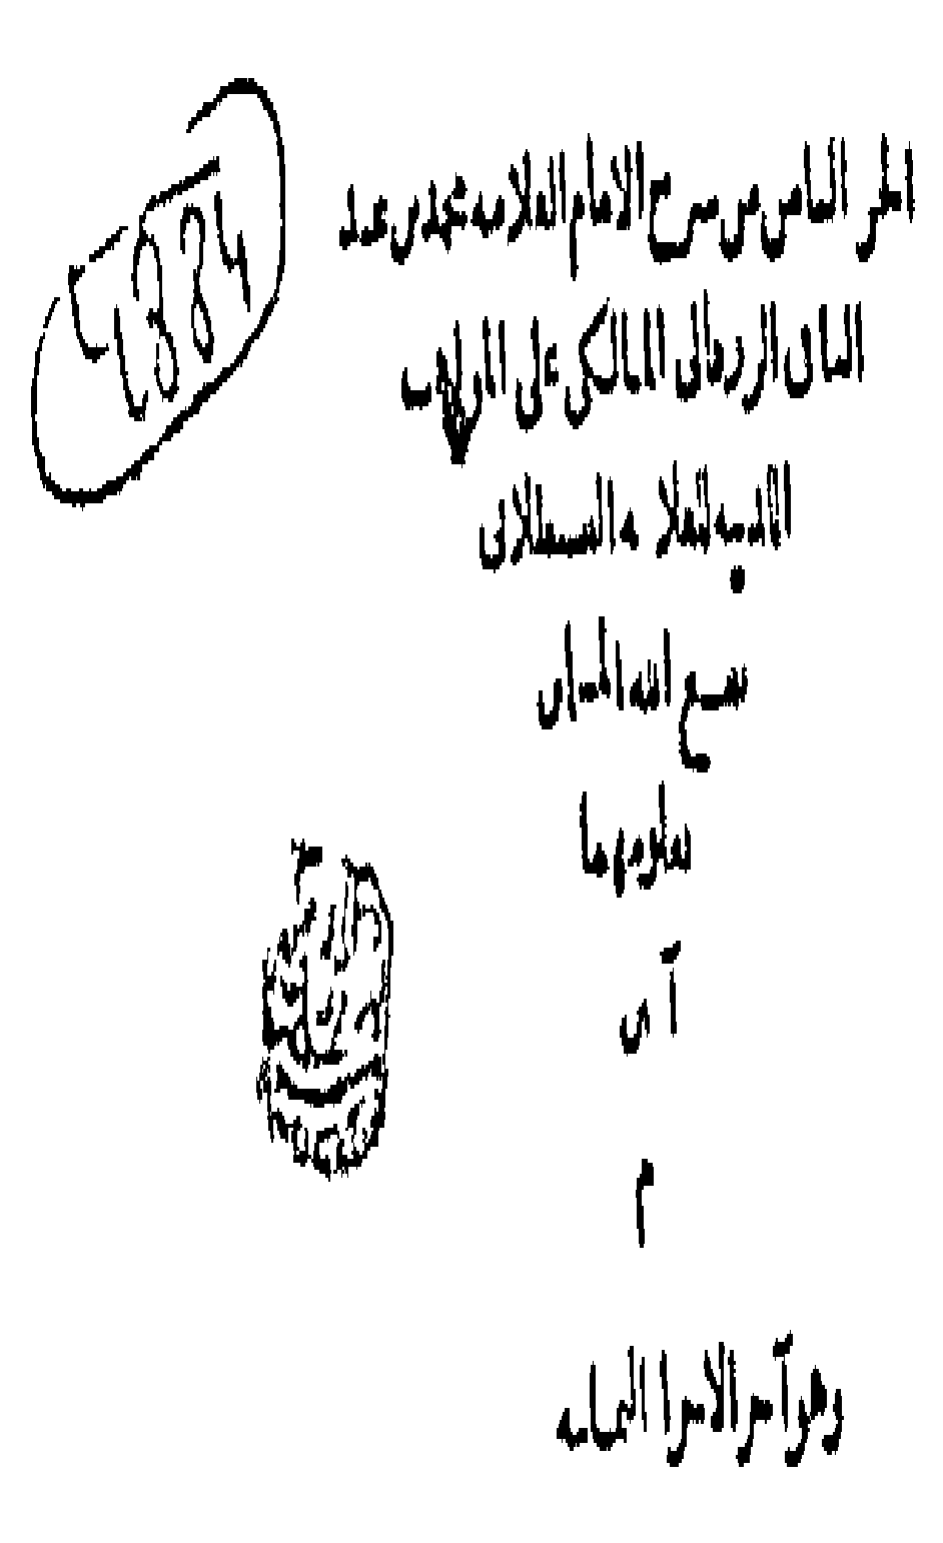 الجزء الثامن من شرح الامام العلامة محمد بن عبد
الباقي الزرقاني المالكي على المواهب
اللدنية للعلامة القسطلاني
نفع الله المسلمين
بعلومهما
آمين
م
وهو آخر الاجزاء الثمانية
2384